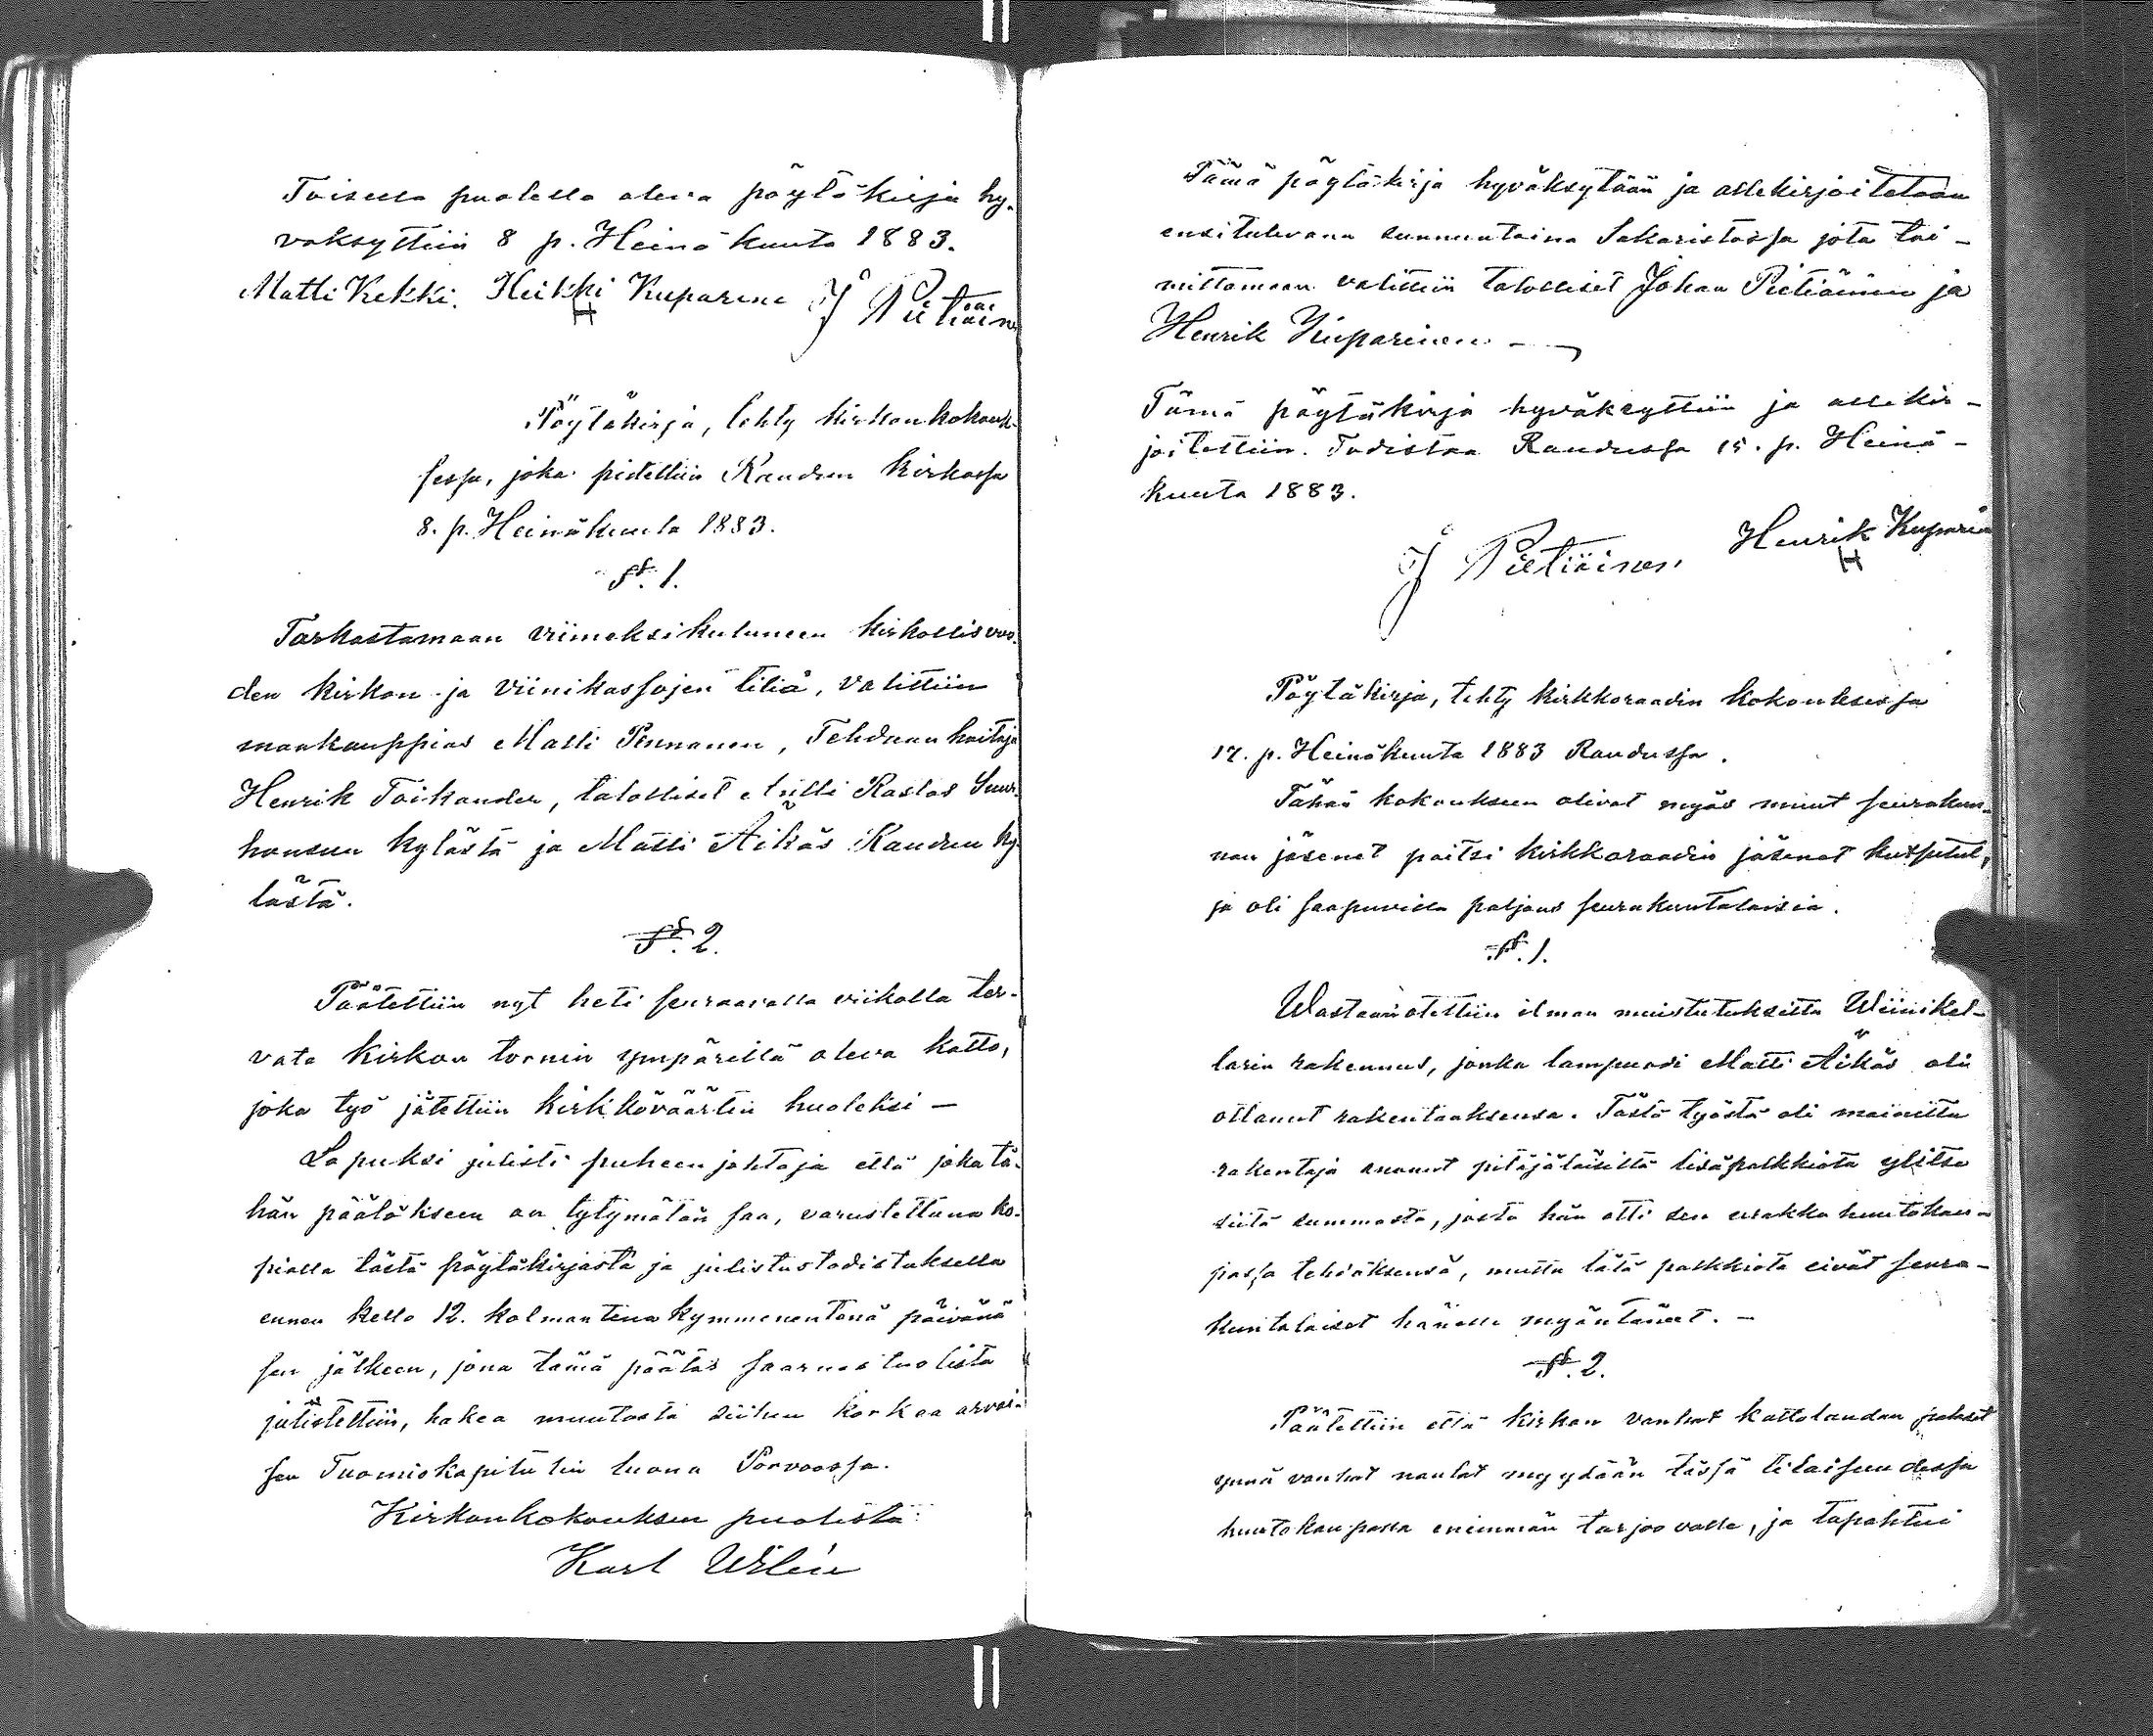 Toisella puolella oleva pöytäkirja hy-
väksyttiin 8 p. Heinäkuuta 1883.
Matti Kekki. Heikki Kuparine J Pietiäinen
H
Pöytäkirja, tehty kirkonkokouk-
sessa, joka pidettiin Raudun kirkossa
8. p. Heinäkuuta 1883.
§. 1.
Tarkastamaan viimeksikuluneen kirkollisvuo-
den kirkon ja viinikassojen tiliä, valittiin
maakauppias Matti Pennanen, Tehdaanhoitaja
Henrik Toikander, talolliset Antti Rastas Suur-
housun kylästä ja Matti Äikäs Raudun ky-
lästä.
§. 2.
Päätettiin nyt heti seuraavalla viikolla ter-
vata kirkon tornin ympärillä oleva katto,
joka työ jätettiin kirkkoväärtin huoleksi —
Lopuksi julisti puheenjohtaja että joka tä-
hän päätökseen on tytymätön saa, varustettuna ko-
pialla tästä pöytäkirjasta ja julistustodistuksella
ennen kello 12. kolmantenakymmenentenä päivänä
sen jälkeen, jona tämä päätös saarnastuolista
julistettiin, hakea muutosta siihen korkea arvoi-
sen Tuomiokapitulin luona Porvoossa.
Kirkonkokouksen puolesta:
Karl Wilén
Tämä pöytäkirja hyväksytään ja allekirjoitetaan
ensitulevana sunnuntaina Sakaristossa jota toi-
mittamaan valittiin talolliset Johan Pietiäinen ja
Henrik Kuparinen —
Tämä pöytäkirja hyväksyttiin ja allekir-
joitettiin. Todistaa Raudussa 15. p. Heinä-
kuuta 1883.
J Pietiäinen Henrik Kuparin
H
Pöytäkirja, tehty kirkkoraadin kokouksessa
17. p. Heinäkuuta 1883 Raudussa.
Tähän kokoukseen olivat myös muut seurakun-
nan jäsenet paitsi kirkkoraadin jäsenet kutsutut,
ja oli saapuvilla paljous seurakuntalaisia.
§. 1.
Wastaanotettiin ilman muistutuksitta Wiinikel-
larin rakennus, jonka lampuodi Matti Äikäs oli
ottanut rakentaaksensa. Tästä työstä oli mainittu
rakentaja anonut pitäjäläisiltä lisäpalkkiota ylitse
siitä summasta, josta hän otti sen urakka huutokau-
passa tehdäksensä, mutta tätä palkkiota eivät seura-
kuntalaiset hänelle myöntäneet. —
§. 2.
Päätettiin että kirkon vanhat kattolaudan palaset
ynnä vanhat naulat myydään tässä tilaisuudessa
huutokaupalla enimmän tarjoovalle, ja tapahtui